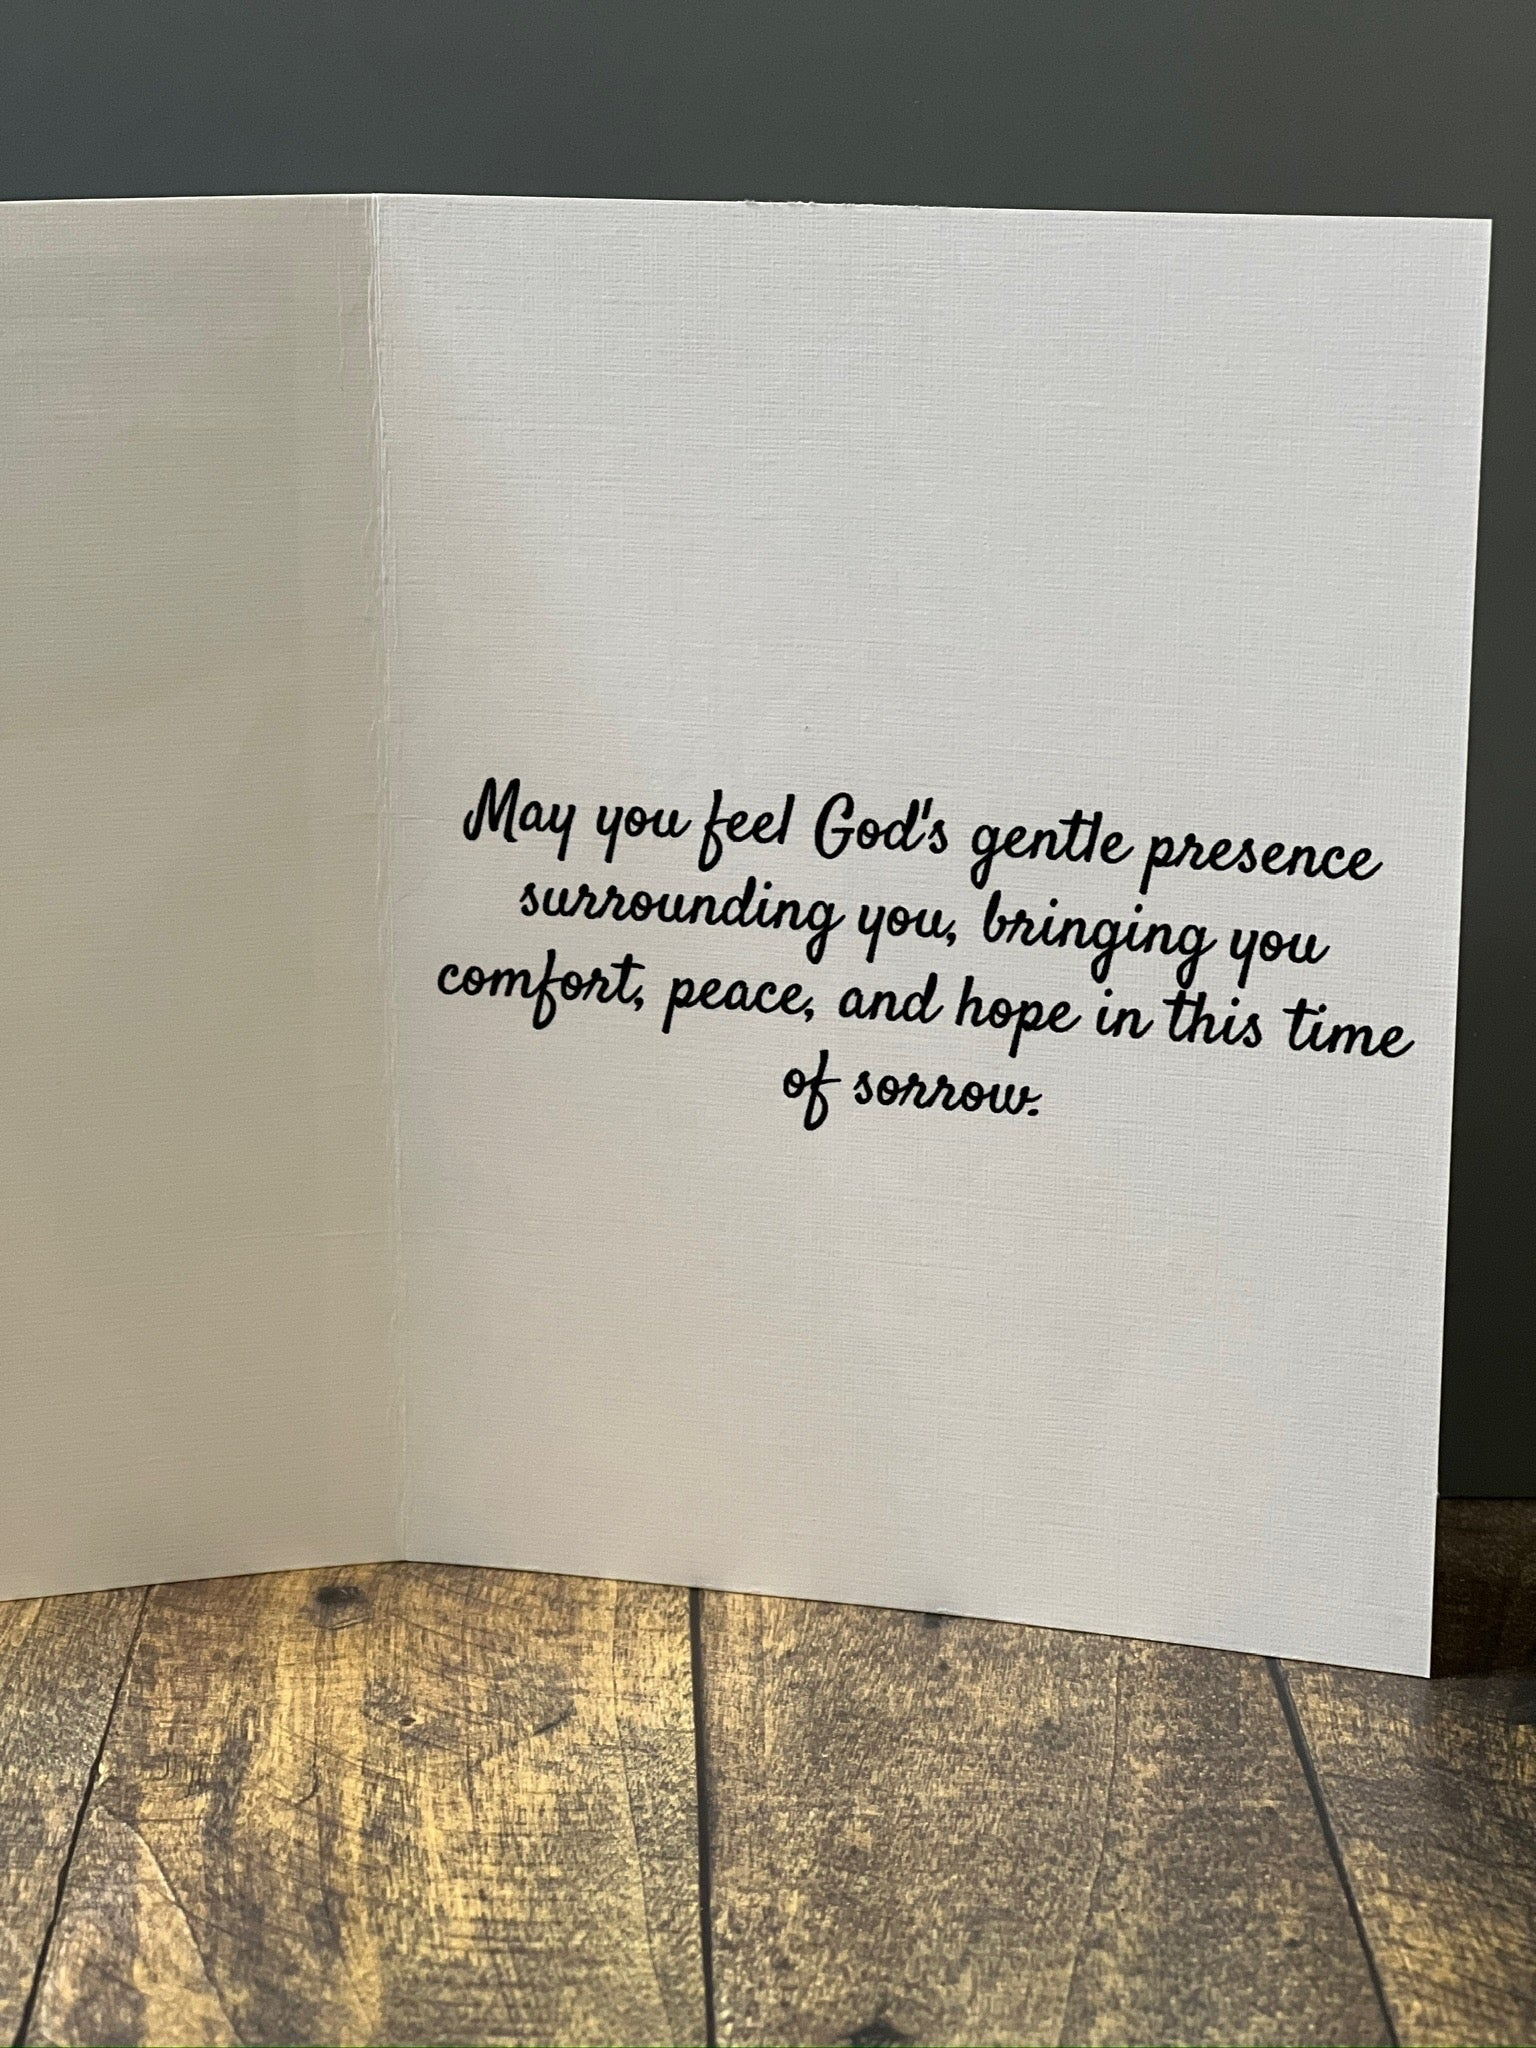 May you feel God's gentle presence
surrounding you, bringing you
comfort, peace, and hope in this time
of sorrow.